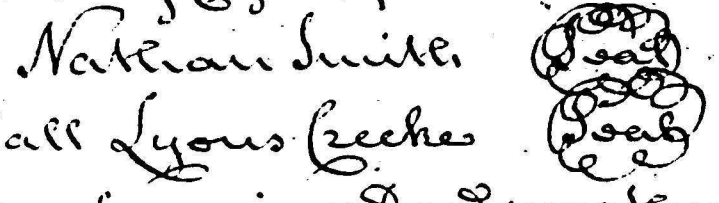 Nathan Smith Seal
all Lyons Creeke Seale